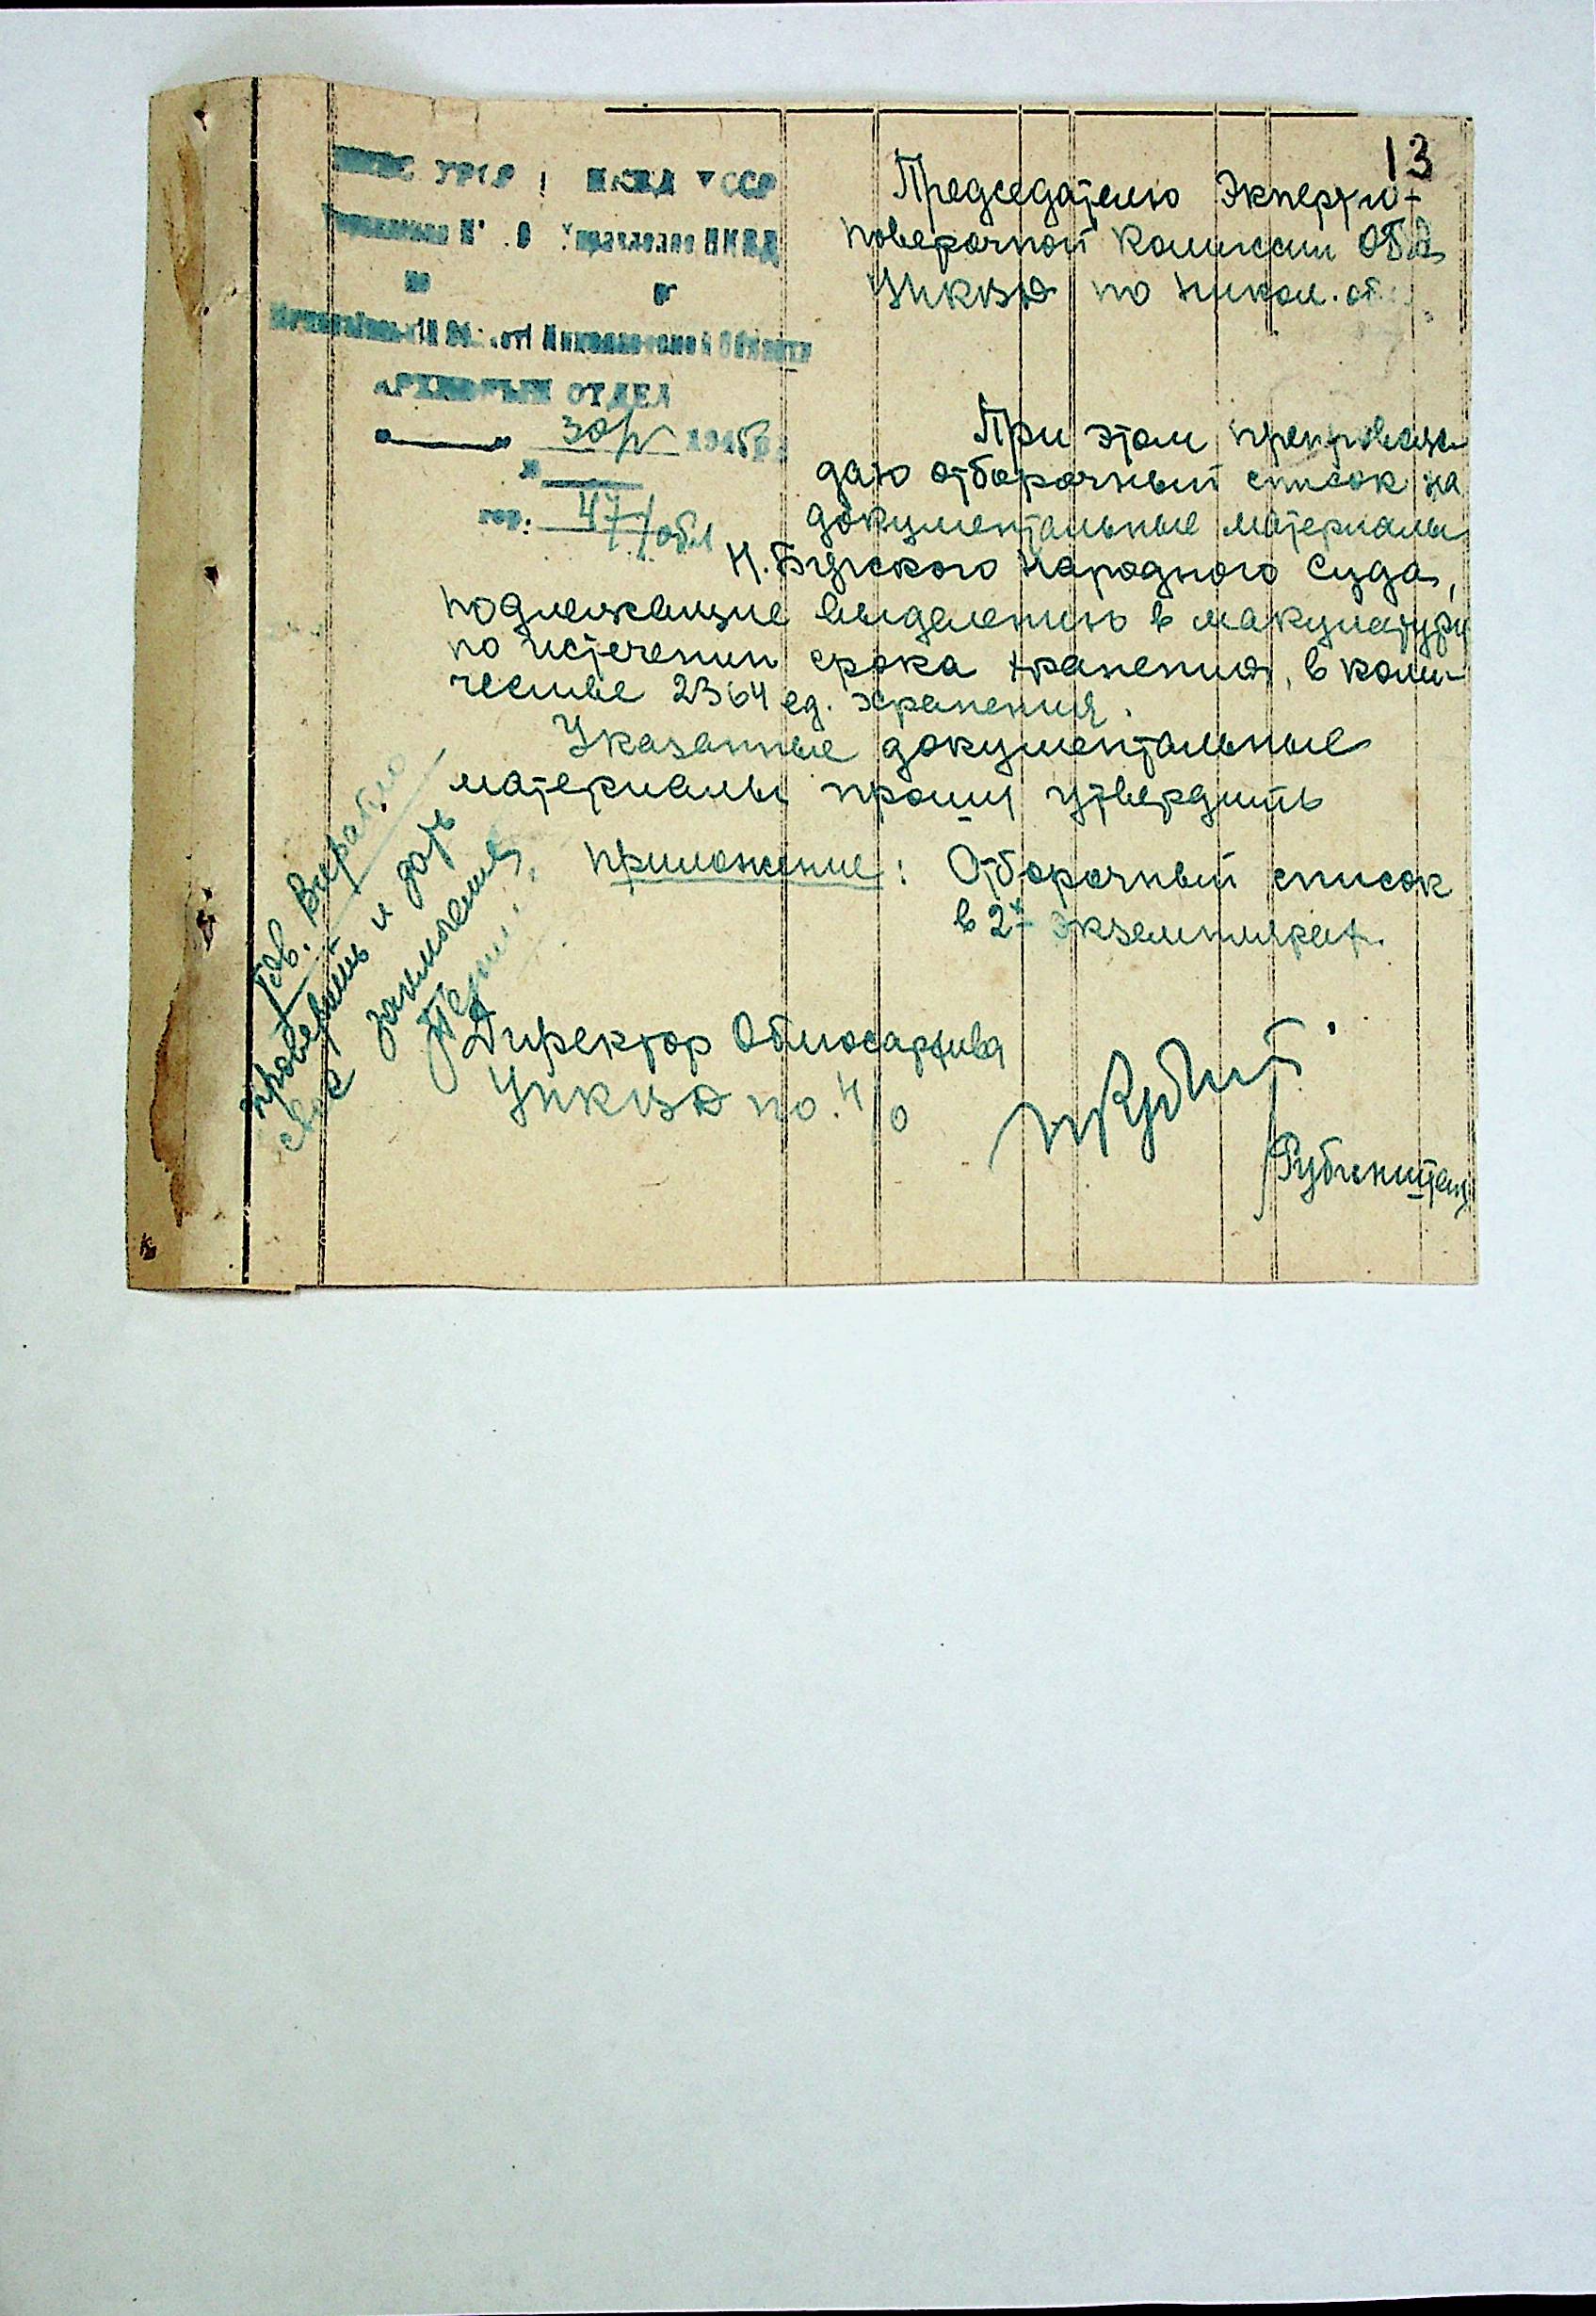 13
НКВС УРСР НКВД УССР
Управление НКВД
по
Николаевской Области
АРХИВНЫЙ ОТДЕЛ
30/IV 1945
гор. 47/обл
Председателю Экпертно-
поверочной комиссии
УНКВД по Никол. об
При этом препровож
даю отборочный список на
документальные материалы
Н.Бугского Народного Суда,
подлежащие выделению в макулатуру
по истечении срока хранения, в коли-
честве 2364 ед. хранения.
Указанные документальные
материалы прошу утвердить
Приложение: Отборочный список
в 2х экземплярах.
Директор Облгосархива
УНКВД по Н/о
Рубинштейн
Тов.
проверить и дать
свое заключение